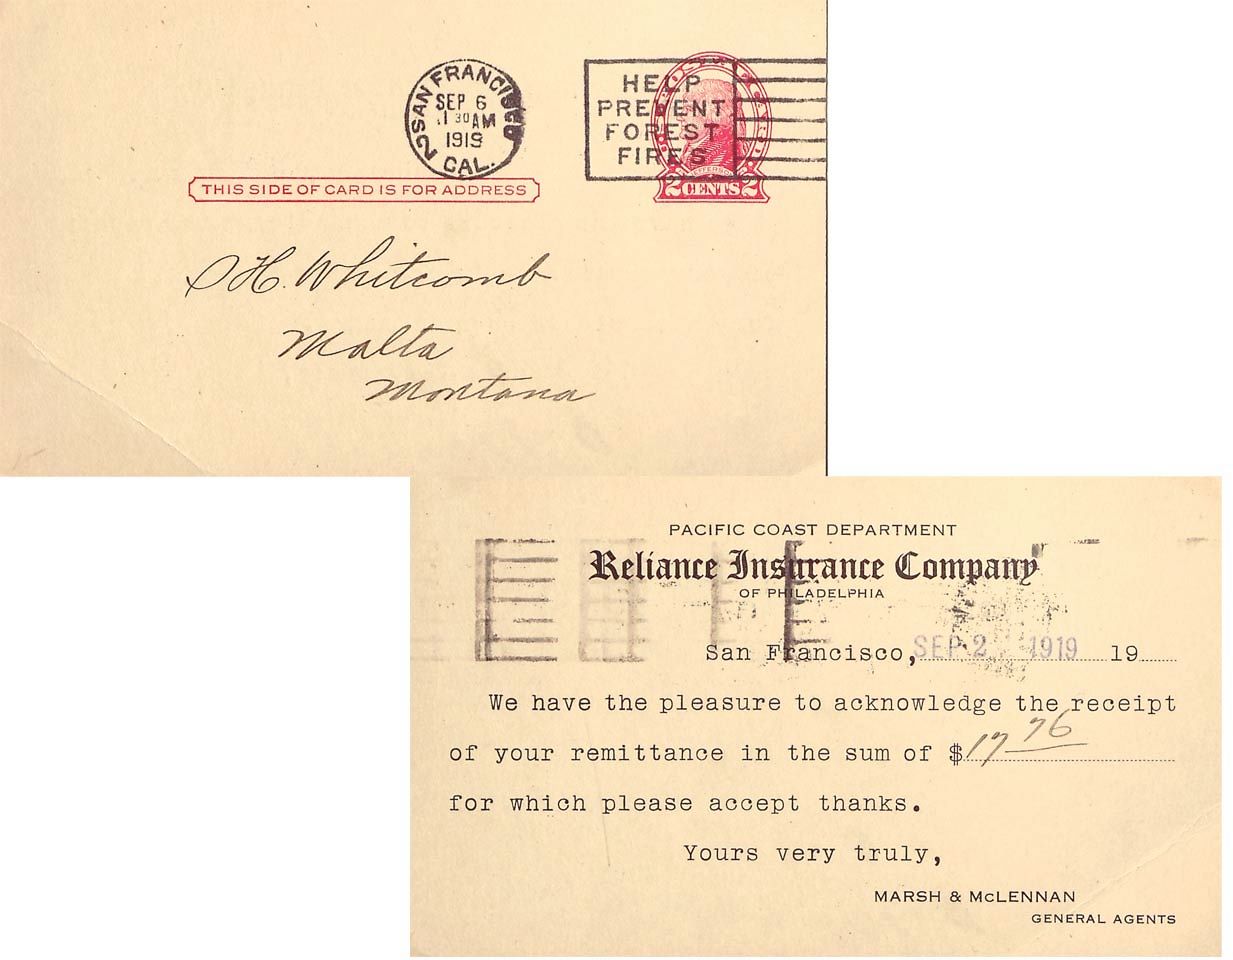 SAN FRANCISCO
SEP 6
1 30 AM
1919
2 CAL.
HELP
PREVENT
FOREST
FIRES
2 CENTS 2
THIS SIDE OF CARD IS FOR ADDRESS
S H. Whitcomb
Malta
Montana
PACIFIC COAST DEPARTMENT
Reliance Insurance Company
OF PHILADELPHIA
San Francisco, SEP 2 1919 19
We have the pleasure to acknowledge the receipt
of your remittance in the sum of $ 17 76
for which please accept thanks.
Yours very truly,
MARSH & McLENNAN
GENERAL AGENTS